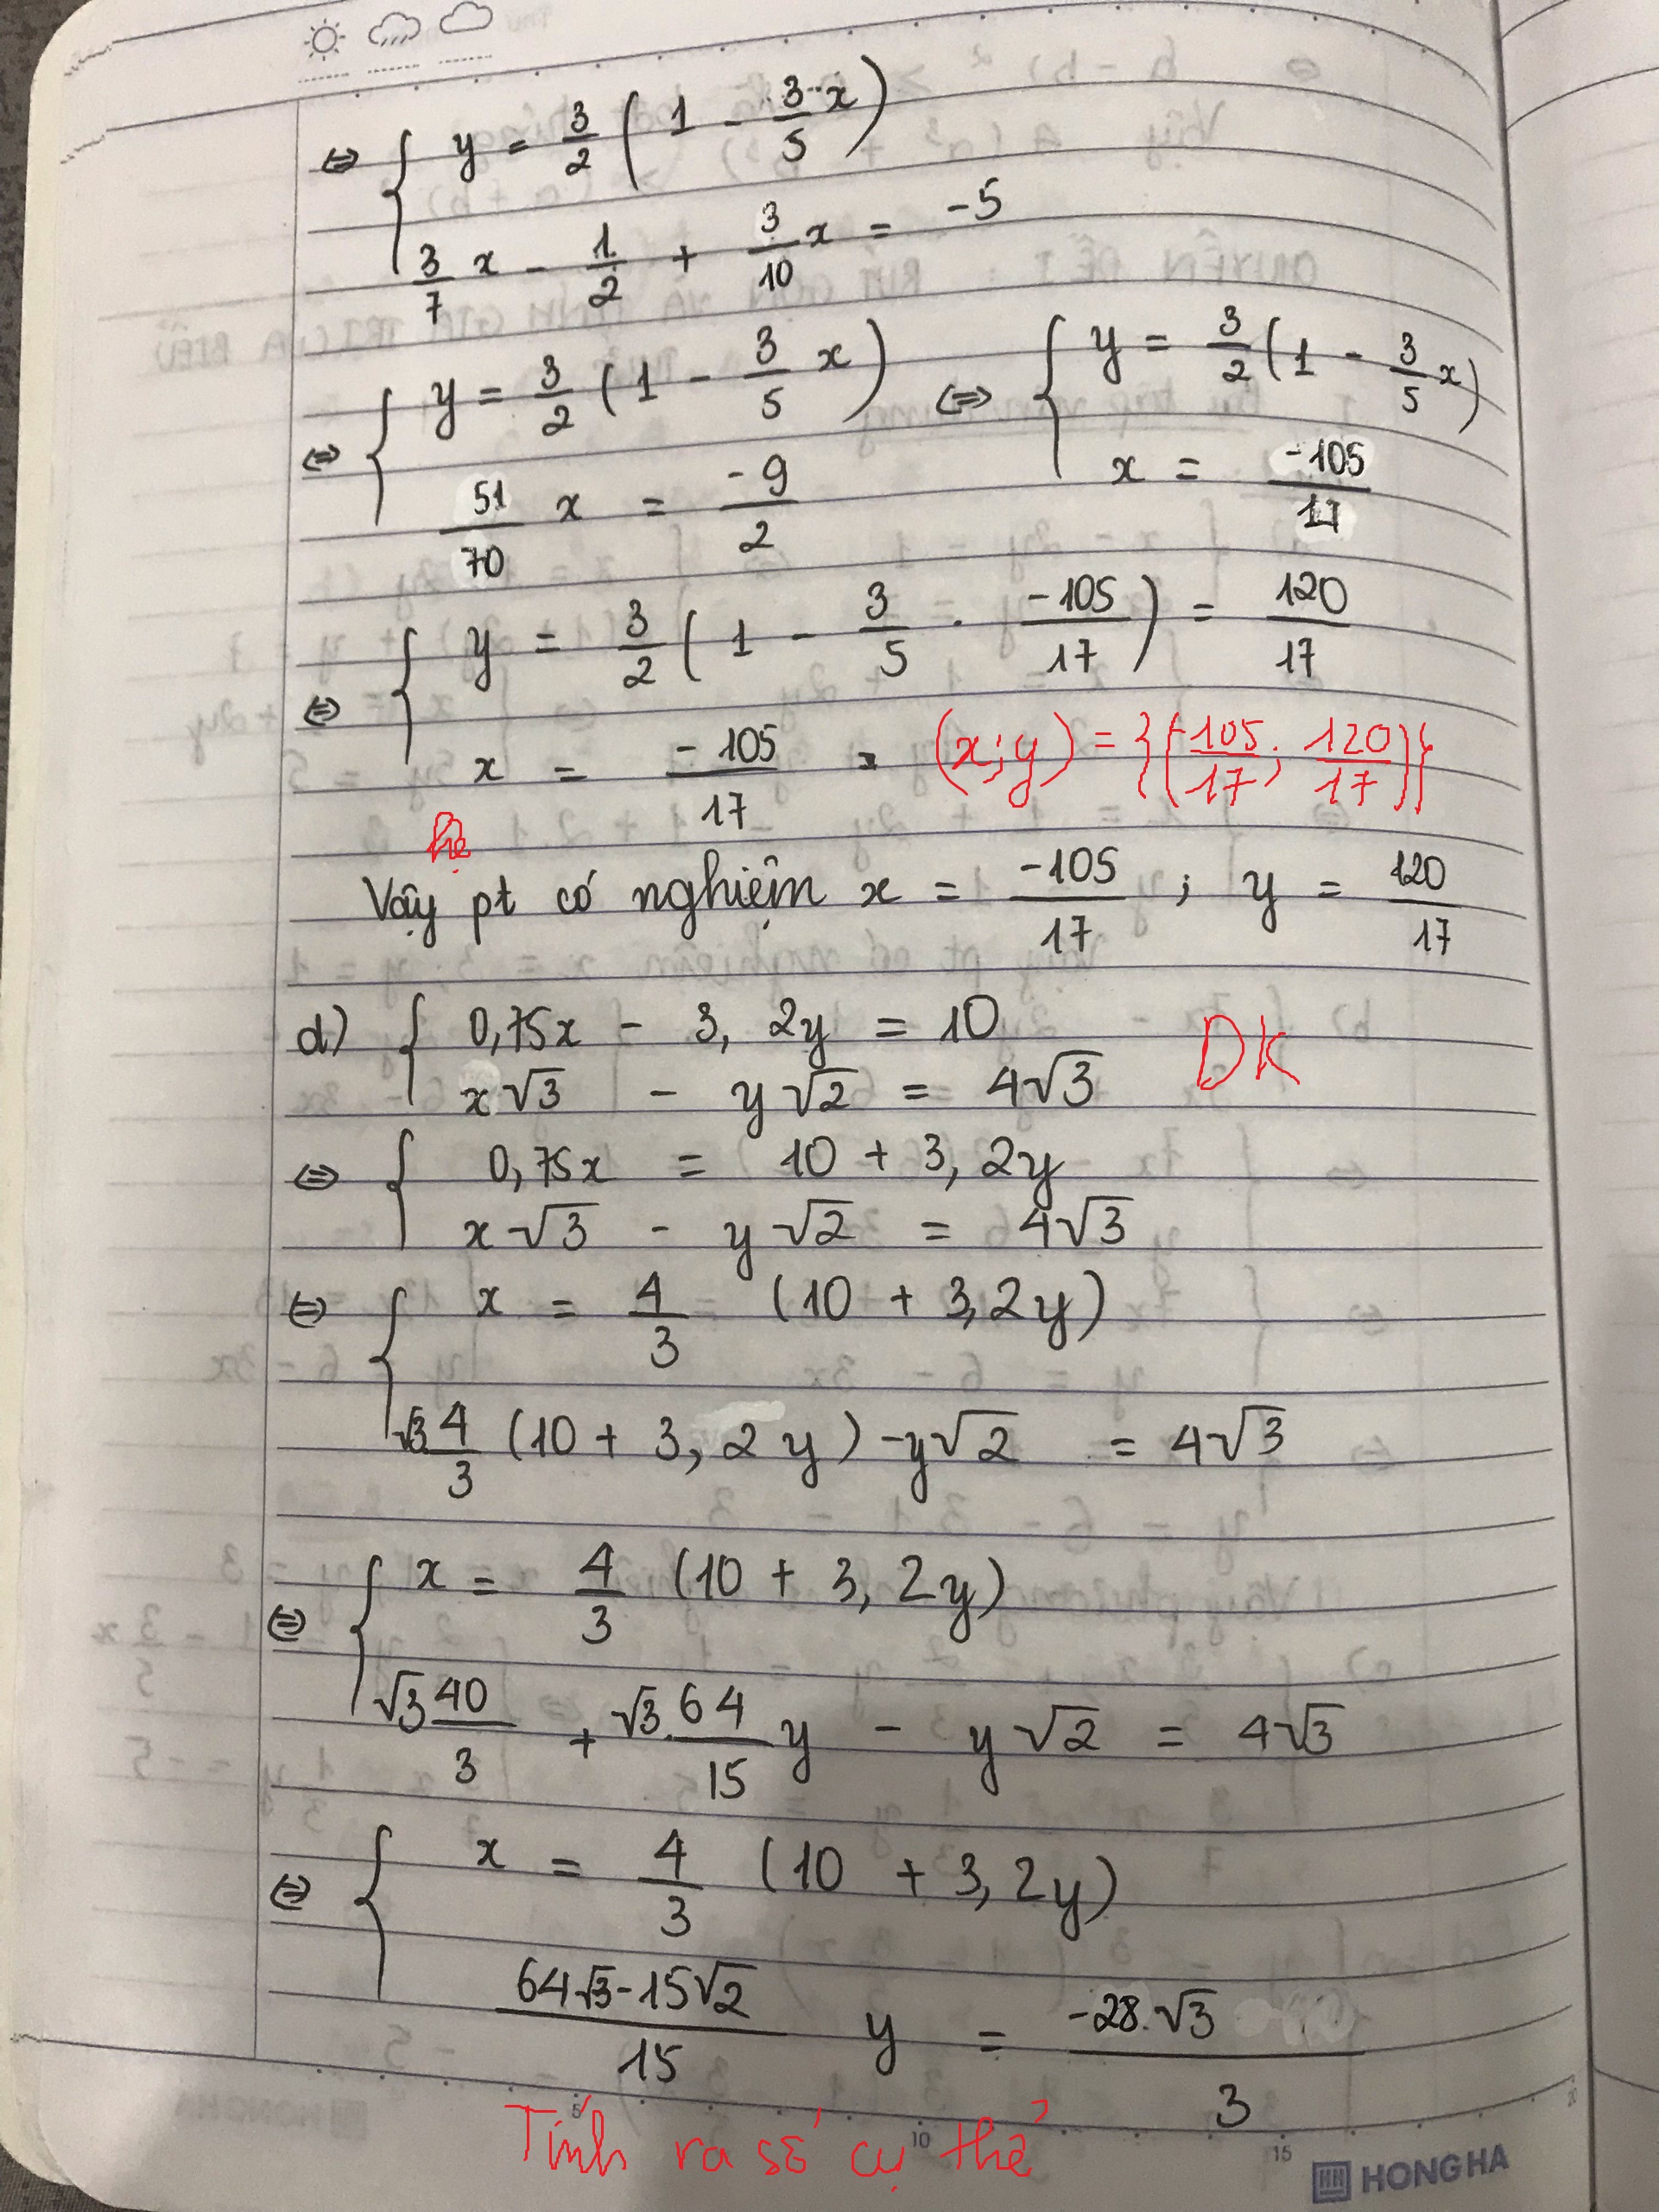 ⇔ { y = 3/2 (1 - 3/5 x)
3/7 x - 1/2 + 3/10 x = -5
⇔ { y = 3/2 (1 - 3/5 x) ⇔ { y = 3/2 (1 - 3/5 x)
51/70 x = -9/2 x = -105/17
⇔ { y = 3/2 (1 - 3/5 . -105/17) = 120/17
x = -105/17 (x;y) = {(-105/17; 120/17)}
hệ
Vậy pt có nghiệm x = -105/17 ; y = 120/17
d) { 0,75x - 3,2y = 10 DK
x√3 - y√2 = 4√3
⇔ { 0,75x = 10 + 3,2y
x√3 - y√2 = 4√3
⇔ { x = 4/3 (10 + 3,2y)
√3 4/3 (10 + 3,2y) - y√2 = 4√3
⇔ { x = 4/3 (10 + 3,2y)
√3 40/3 + √3 . 64/15 y - y√2 = 4√3
⇔ { x = 4/3 (10 + 3,2y)
64√3 - 15√2/15 y = -28.√3/3
Tính ra số cụ thể
5 10 15 20
HONG HA